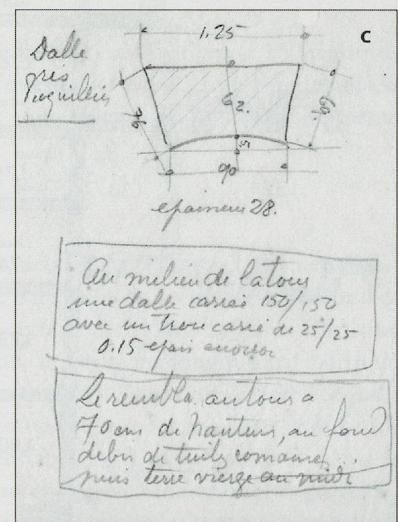 C
1.25
Dalle
près
62.
69.
76
5
90
epaisseur 28.
Au milieu de la tour
une dalle carrée 150/150
avec un trou carré de 25/25
0.15 epais environ
Le rembla autour a
70 cm de hauteur, au fond
débis de tuiles romaines
puis terre vierge au midi